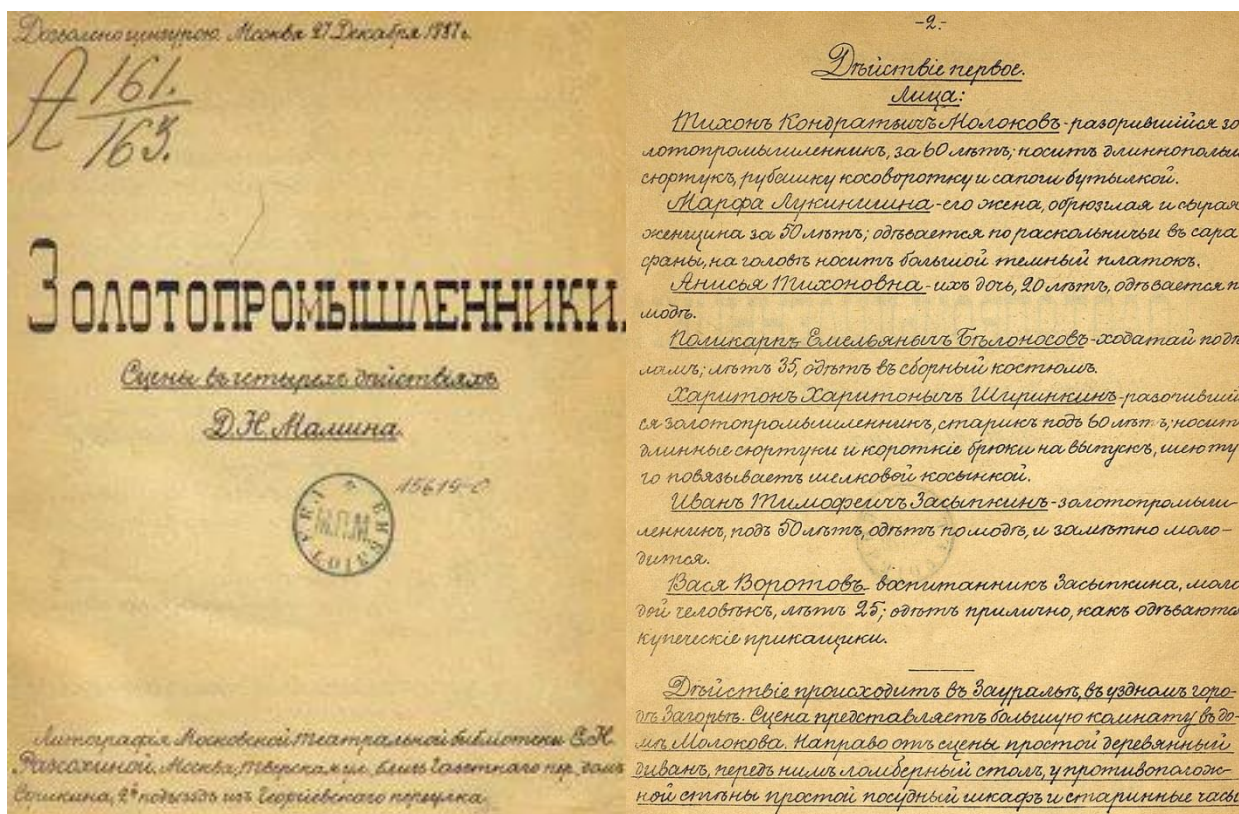 Дозволено цензурою. Москва 27 Декабря 1887 г.
А 161.
163.
Золотопромышленники.
Сцены въ четырехъ действіяхъ
Д. Н. Мамина.
15619-0
М.П.М.
Литографія Московской Театральной библіотеки С. Н.
Разсохиной. Москва, Тверская ул., близъ Газетнаго пер., домъ
Сушкина, 2й подъездъ изъ Георгіевскаго переулка.
-2-
Дѣйствіе первое.
Лица:
Тихонъ Кондратьичъ Молоковъ - разорившійся зо
лотопромышленникъ, за 60 лѣтъ; носитъ длиннополый
сюртукъ, рубашку косоворотку и сапоги бутылкой.
Марфа Лукинишна - его жена, обрюзглая и сырая
женщина за 50 лѣтъ; одѣвается по раскольничьи въ сара
фаны, на головѣ носитъ большой темный платокъ.
Анисья Тихоновна - ихъ дочь, 20 лѣтъ, одѣвается п
модѣ.
Поликарпъ Емельянычъ Бѣлоносовъ - ходатай по дѣ
ламъ; лѣтъ 35, одѣтъ въ сборный костюмъ.
Харитонъ Харитонычъ Ширинкинъ - разоривший
ся золотопромышленникъ, старикъ подъ 60 лѣтъ; носитъ
длинные сюртуки и короткіе брюки на выпускъ, шею ту
го повязываетъ шелковой косынкой.
Иванъ Тимофеичъ Засыпкинъ - золотопромыш-
ленникъ, подъ 50 лѣтъ, одѣтъ по модѣ, и замѣтно моло-
дится.
Вася Воротовъ - воспитанникъ Засыпкина, моло
дой человѣкъ, лѣтъ 25; одѣтъ прилично, какъ одѣваются
купеческіе прикащики.
Дѣйствіе происходитъ въ Зауральѣ, въ уѣздномъ горо-
дѣ Загорьѣ. Сцена представляетъ большую комнату въ до-
мѣ Молокова. Направо отъ сцены простой деревянный
диванъ, передъ нимъ ломберный столъ, у противополож-
ной стѣны простой посудный шкафъ и старинные часы